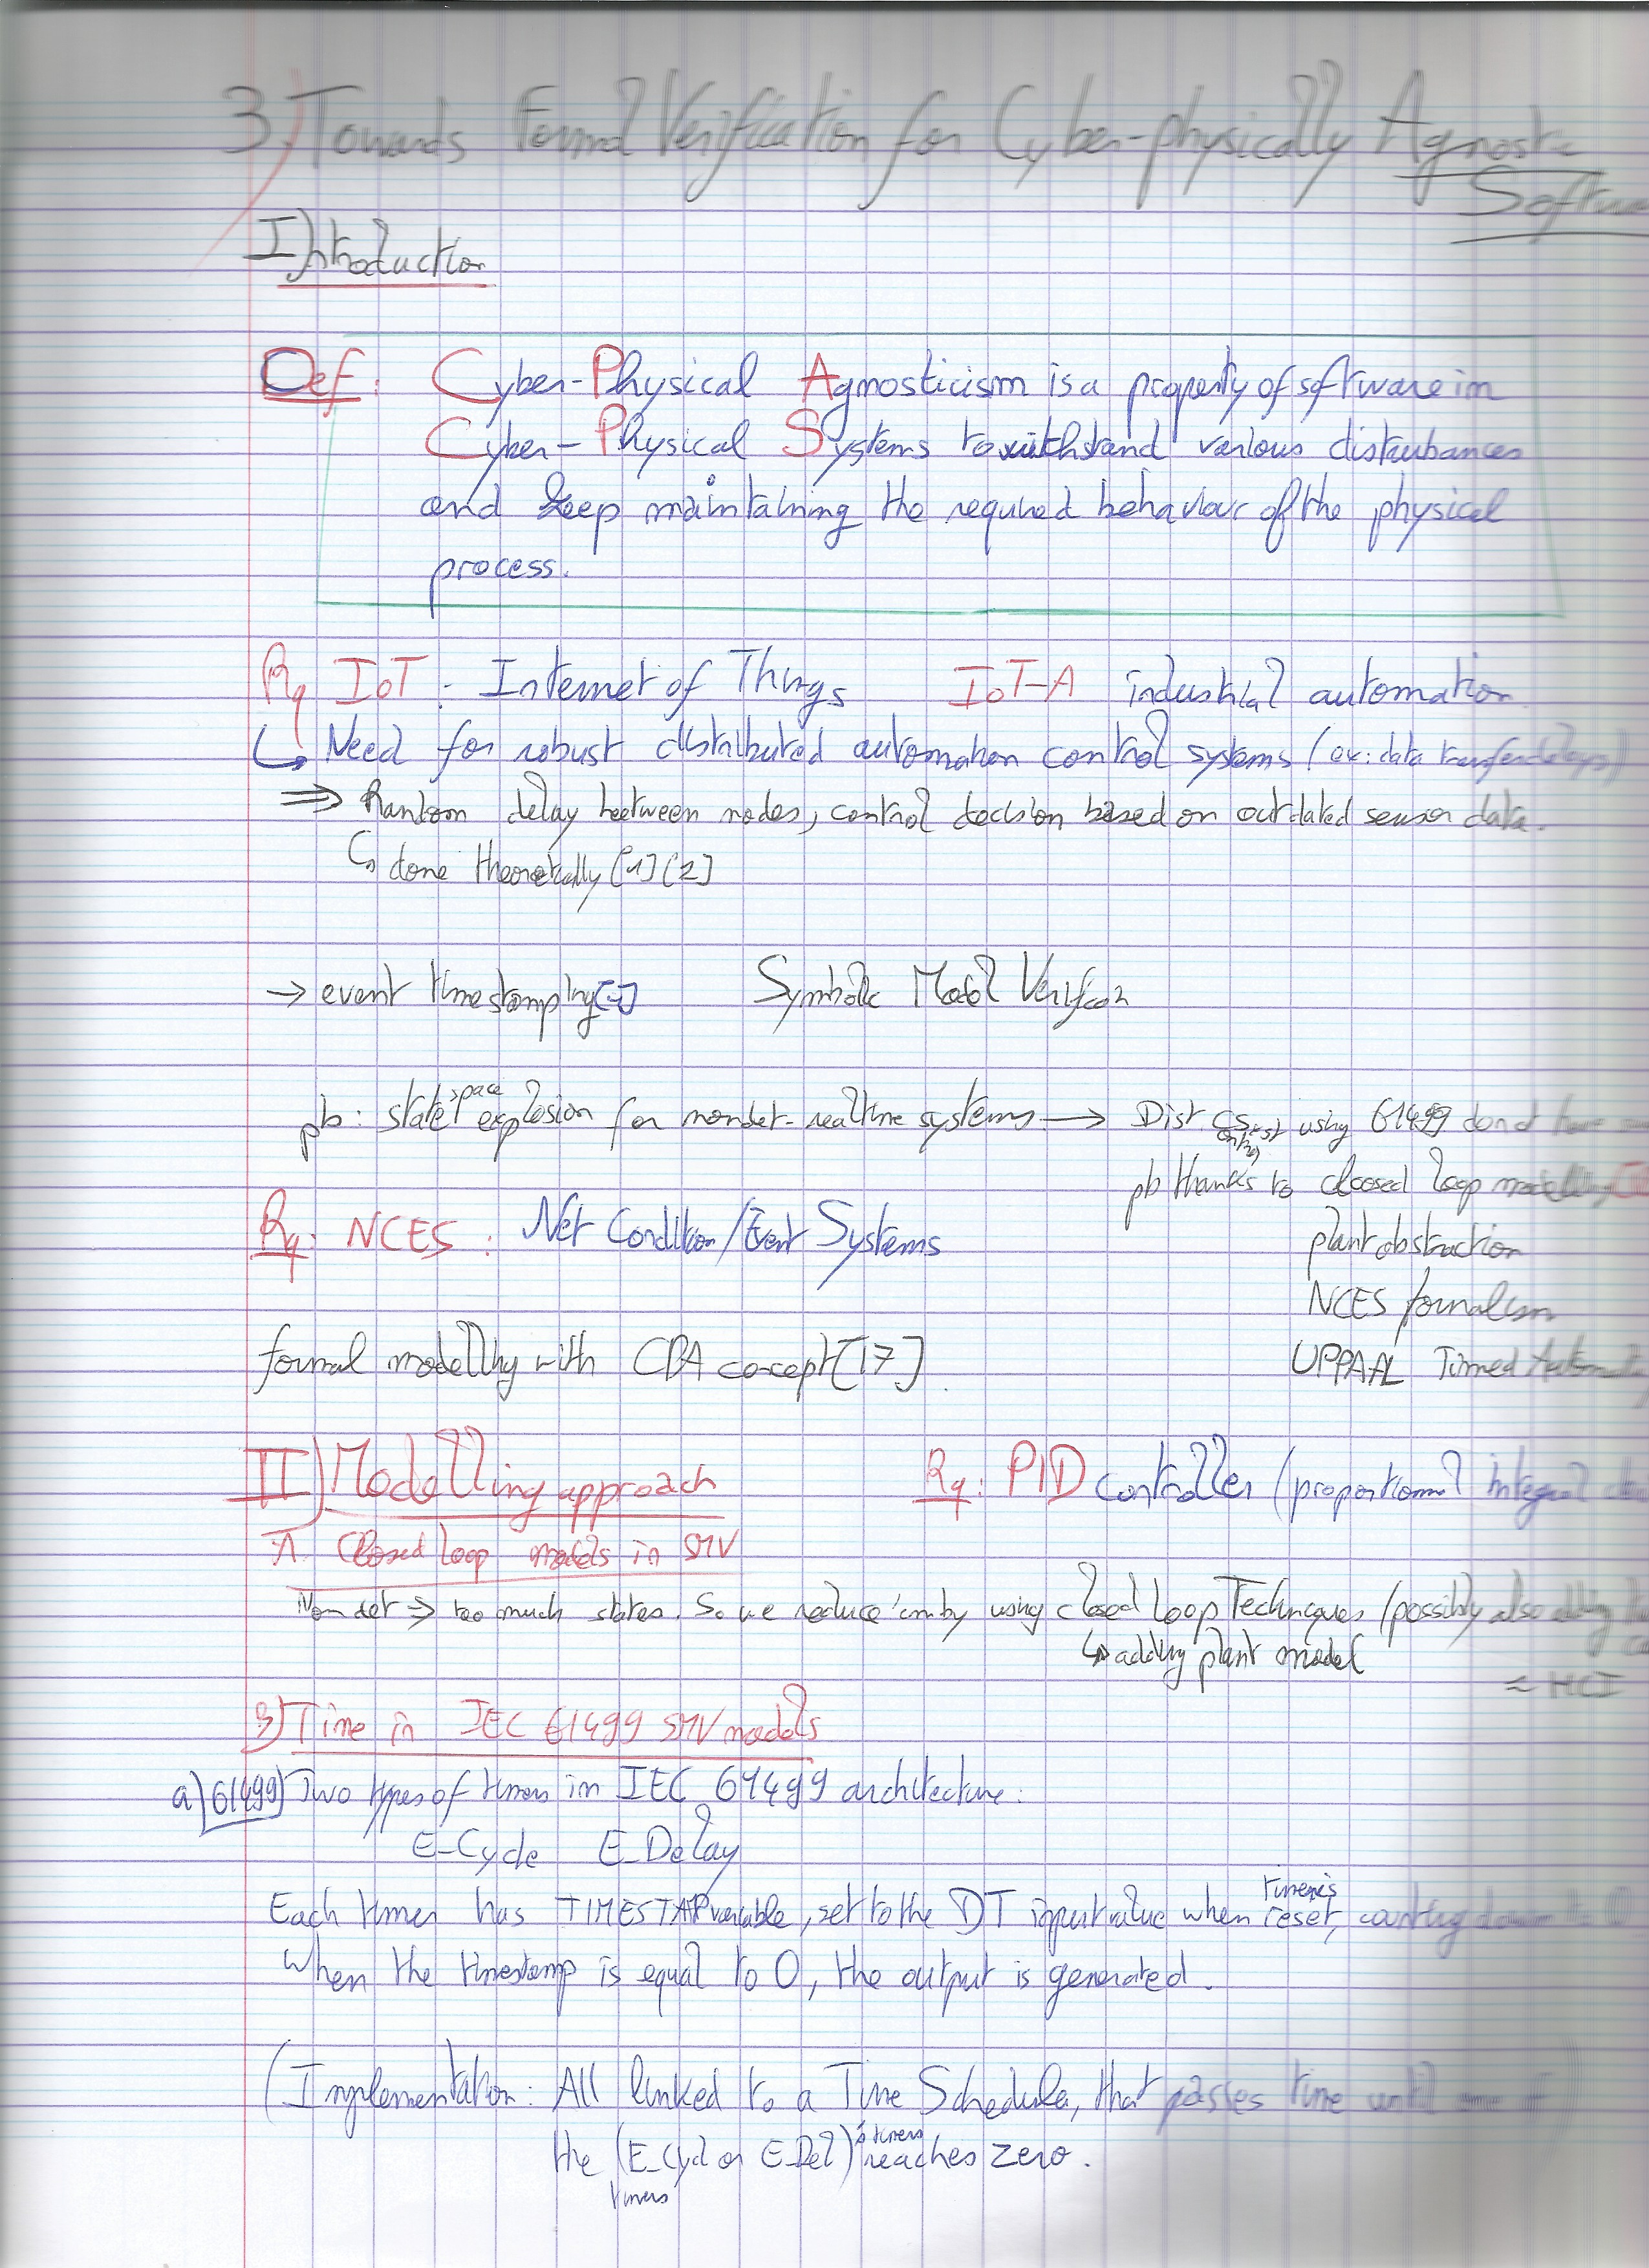 3) Towards Formal Verification for Cyber-physically Agnostic
Software
I) Introduction
Def: Cyber-Physical Agnosticism is a property of software in
Cyber-Physical Systems to withstand various disturbances
and keep maintaining the required behaviour of the physical
process.
Rq IoT : Internet of Things IoT-A industrial automation
↳ Need for robust distributed automation control systems (ex: data transfer delays)
⇒ Random delay between nodes, control decision based on outdated sensor data.
↳ done theoretically [1] [2]
→ event timestamping Symbolic Model
pb: state space explosion for nondet-realtime systems → Dist CS using 61499 don't have
pb thanks to cloosed loop modelling
Rq: NCES : Net Condition/Event Systems
plant abstraction
NCES formalism
formal modelling with CPA concept [17].
UPPAAL Timed Automata
II) Modelling approach
Rq: PID controller (proportional integral
A. Closed loop models in SMV
Non det ⇒ too much states. So we reduce 'em by using closed loop Techniques (possibly also adding
↳ adding plant model
≈ HCI
B) Time in IEC 61499 SMV models
a) 61499) Two types of timers in IEC 61499 architecture:
E-Cycle E_Delay
Each timer has TIMESTAP variable, set to the DT input value when timer is reset, counting down to 0
When the timestamp is equal to 0, the output is generated.
(Implementation: All linked to a Time Schedula, that passes time until one of
the (E_Cycl or E_Del)'s timers reaches zero.
timers